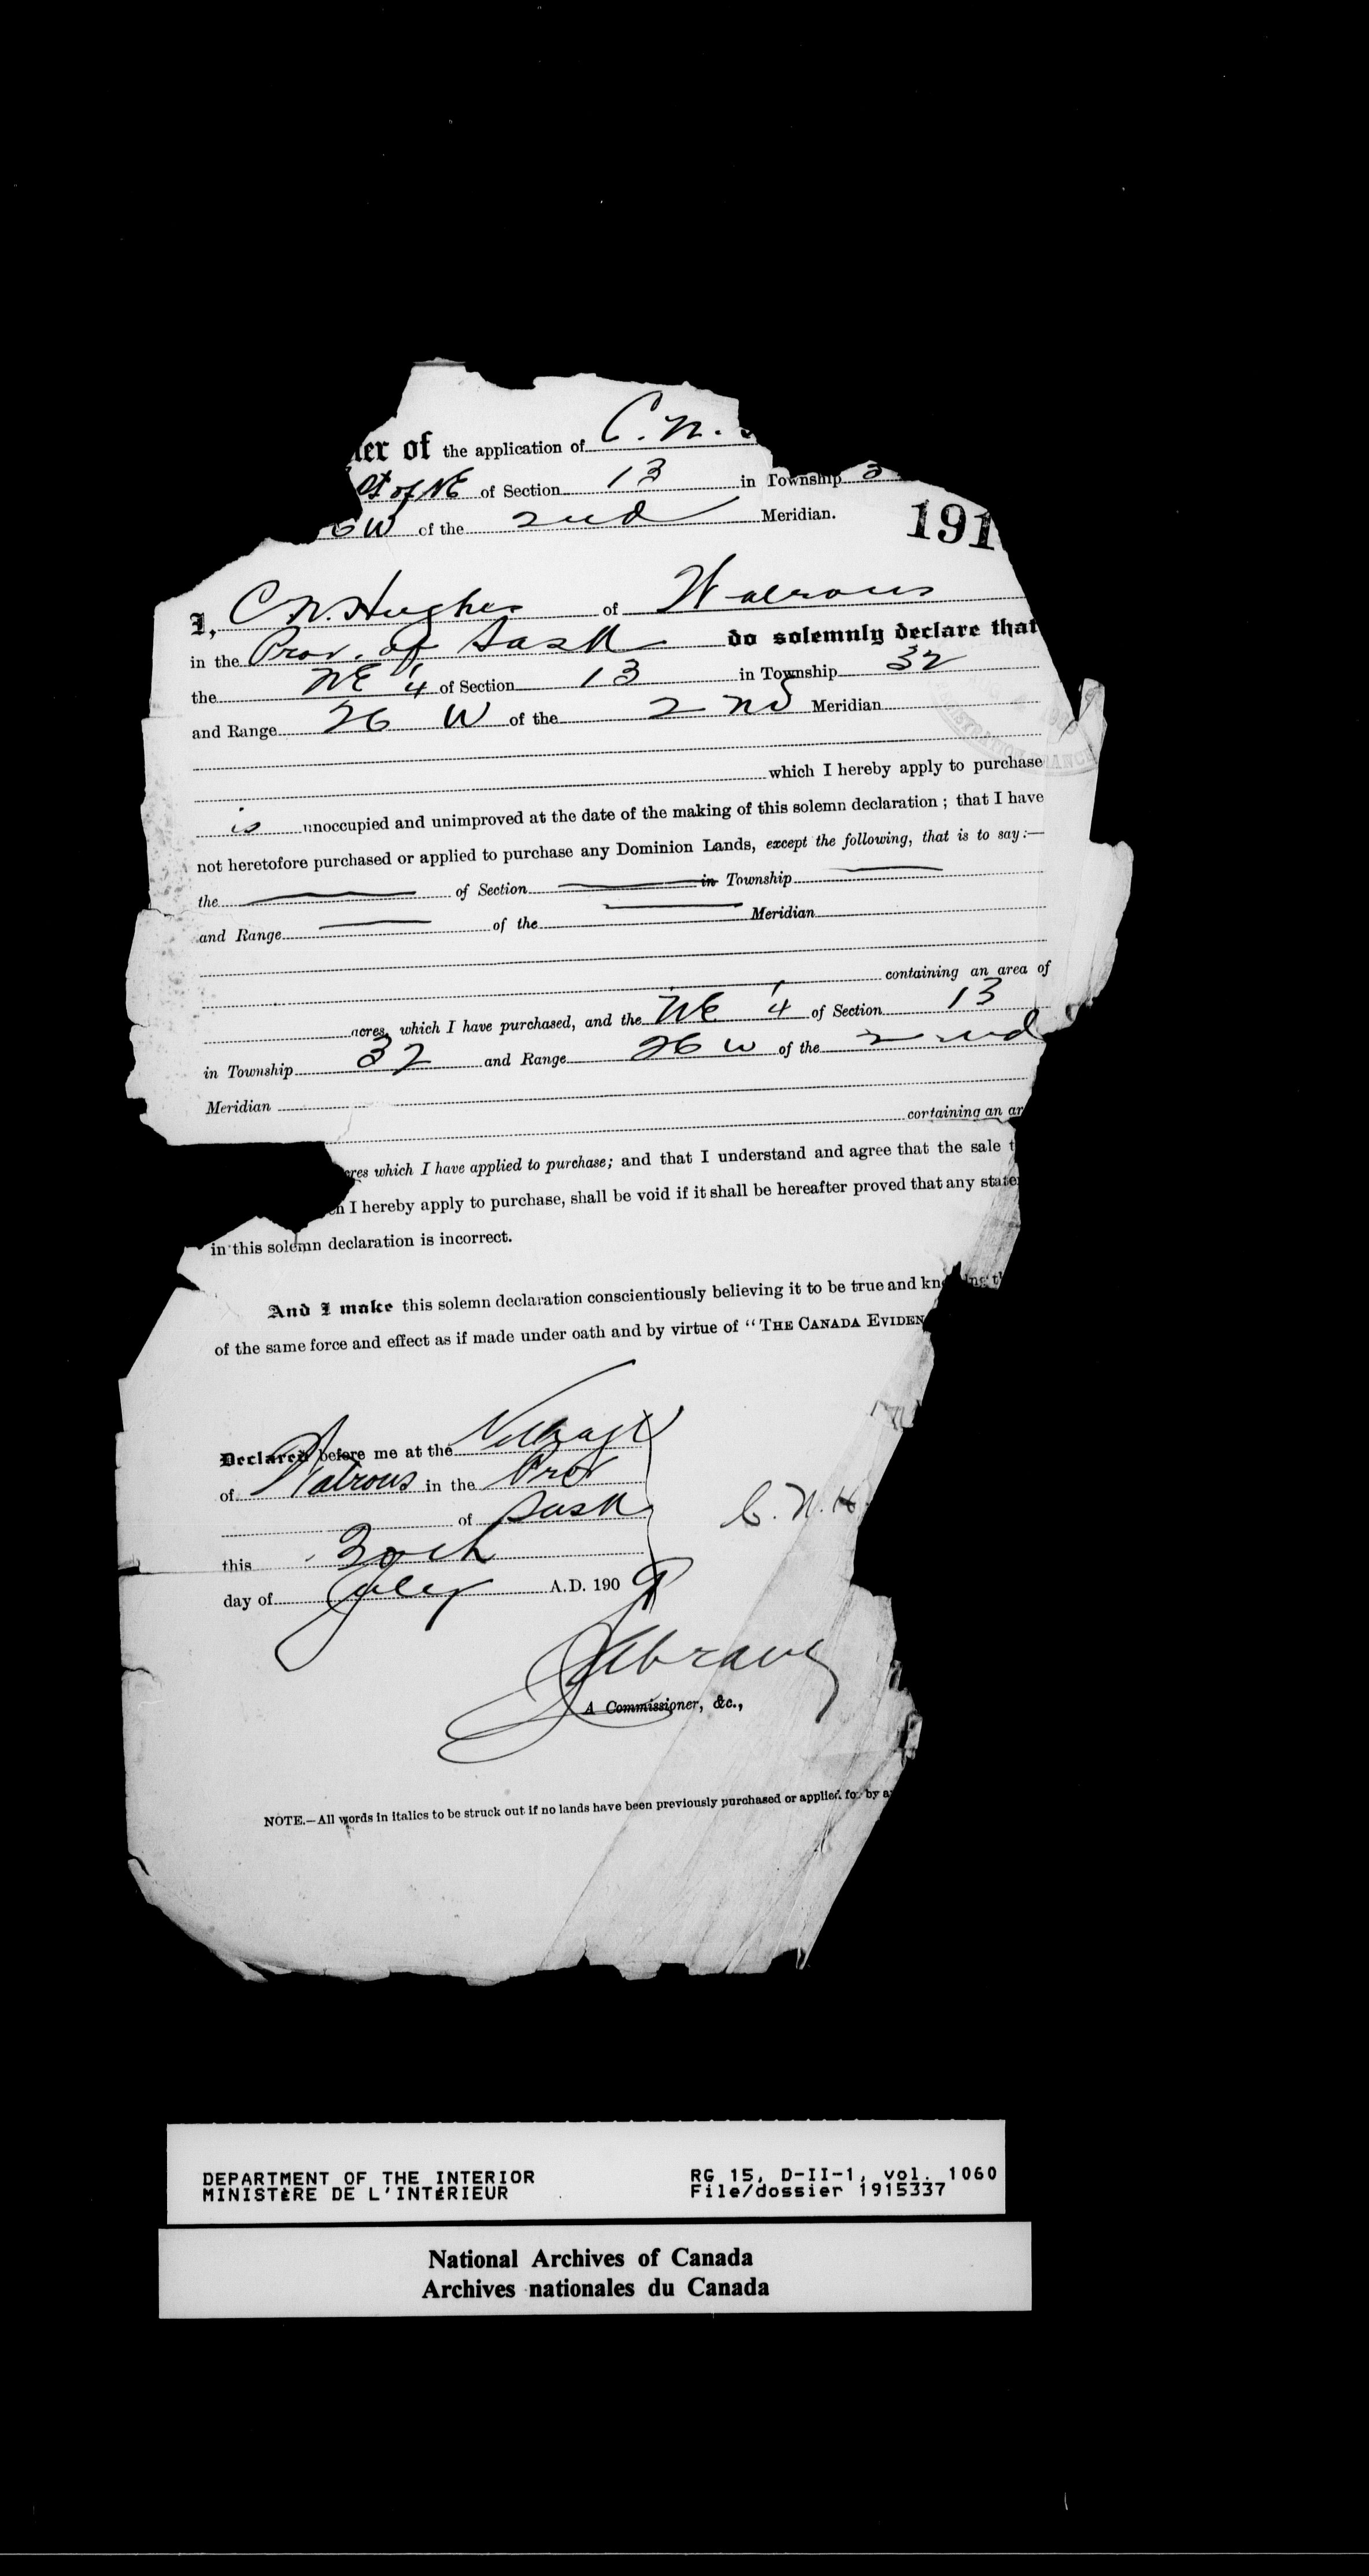 er of the application of C. N.
of NE of Section 13 in Township 3
6 W of the 2nd Meridian.
191
I, C N. Hughes of Watrous
in the Prov. of Sask do solemnly declare that
the NE 1/4 of Section 13 in Township 32
and Range 26 W of the 2nd Meridian
which I hereby apply to purchase
is unoccupied and unimproved at the date of the making of this solemn declaration; that I have
not heretofore purchased or applied to purchase any Dominion Lands, except the following, that is to say:—
the of Section in Township
and Range of the Meridian
containing an area of
acres, which I have purchased, and the NE 1/4 of Section 13
in Township 32 and Range 26 W of the 2nd
Meridian
containing an ar
cres which I have applied to purchase; and that I understand and agree that the sale t
h I hereby apply to purchase, shall be void if it shall be hereafter proved that any state
in this solemn declaration is incorrect.
And I make this solemn declaration conscientiously believing it to be true and kn
of the same force and effect as if made under oath and by virtue of "THE CANADA EVIDEN
Declared before me at the Village
of Watrous in the Prov
of Sask
this 30th
day of July A.D. 1909
C. N. H
A Commissioner, &c.,
NOTE.—All words in italics to be struck out if no lands have been previously purchased or applied for by a
DEPARTMENT OF THE INTERIOR RG 15, D-II-1, vol. 1060
MINISTÈRE DE L'INTÉRIEUR File/dossier 1915337
National Archives of Canada
Archives nationales du Canada